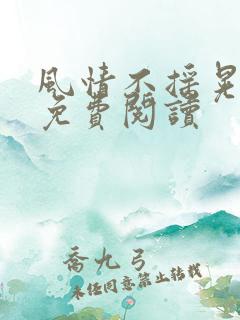 風情不搖晃
免費閱讀
喬九弓
未經同意禁止轉載